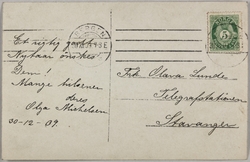 Et rigtig godt
Nytaar ønskes
Dem!
Mange hilsener
deres
Olga Mikkelsen
30-12-09.
Frk. Olava Lunde
Telegrafstationen
Stavanger
5